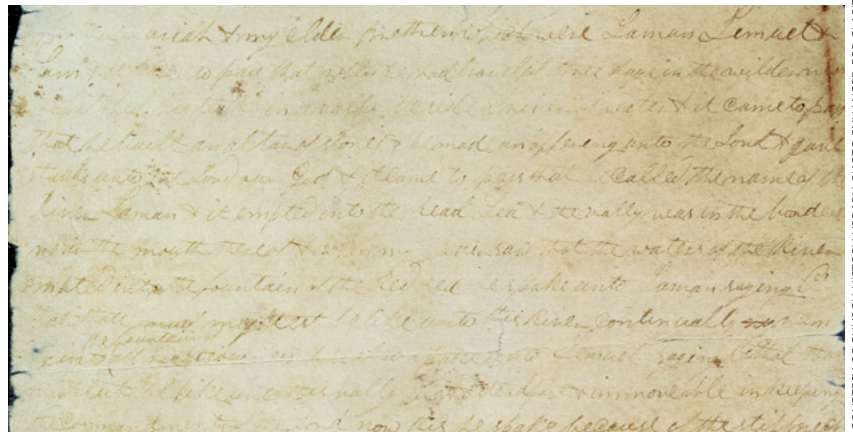 ariah & my elder brethren which were Laman Lemuel &
Sam to pass that when he had traveled three days in the wilderness
in a vally beside a river of water & it came to pass
that he built an altar of stones & he made an offering unto the Lord & gave
thanks unto the Lord our God & it came to pass that he called the name of the
River Laman & it emptied into the Read Sea & the vally was in the borders
near the mouth thereof & when my father saw that the waters of the River
emptied into the fountain of the Red Sea he spake unto Laman saying O
that thou mightest be like unto this River continually
the fountain
running he spake unto Lemuel saying O that thou
be like unto this vally firm & steadfast & immoveable in keeping
the Commandments of the Lord now this he spake because of the stiffneck